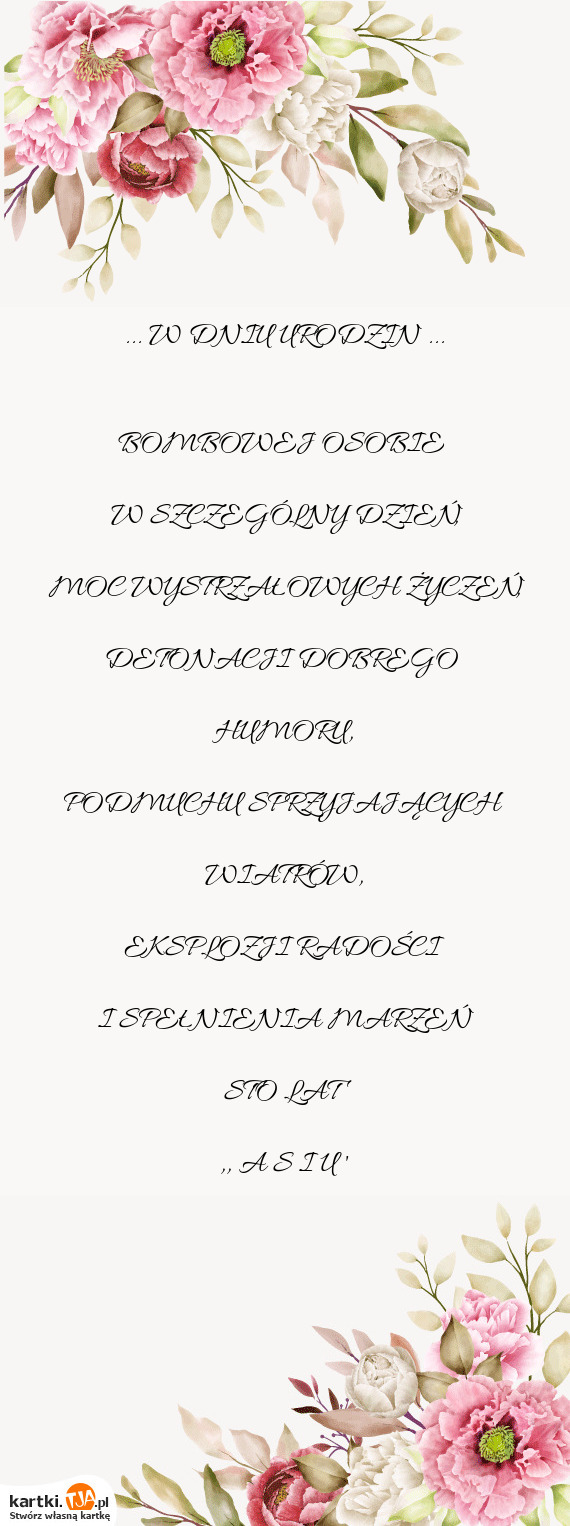 ... W DNIU URODZIN ...
BOMBOWEJ OSOBIE
W SZCZEGÓLNY DZIEŃ,
MOC WYSTRZAŁOWYCH ŻYCZEŃ,
DETONACJI DOBREGO
HUMORU,
PODMUCHU SPRZYJAJĄCYCH
WIATRÓW,
EKSPLOZJI RADOŚCI
I SPEŁNIENIA MARZEŃ
STO LAT'
,, A S I U '
kartki.TJA.pl
Stwórz własną kartkę